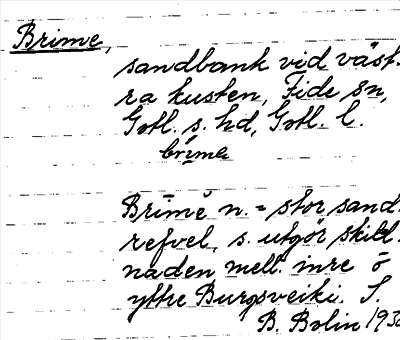 Brime,
sandbank vid väst-
ra kusten, Fide sn,
Gotl. s. hd, Gotl. l.
brima
Brīmĕ n. = stor sand-
refvel, s. utgör skill-
naden mell. inre o
yttre Burgsveiki. S.
B. Bolin 1930